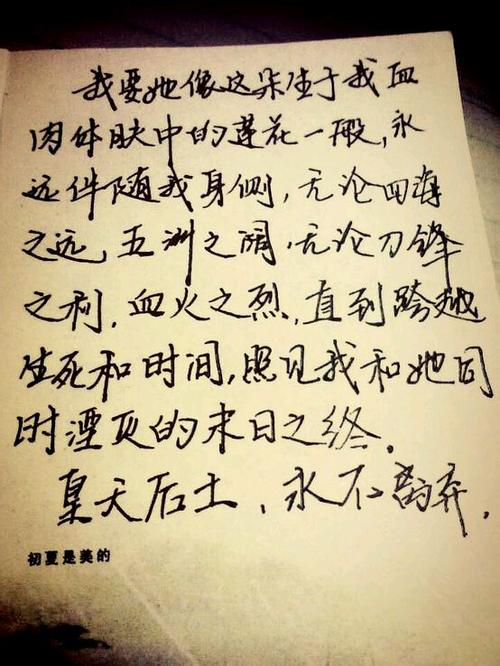 我要她像这朵生于我血
肉体肤中的莲花一般,永
远伴随我身侧,无论四海
之远,五洲之阔,无论刀锋
之利,血火之烈,直到跨越
生死和时间,照见我和她同
时湮灭的末日之终.
皇天后土,永不离弃.
初夏是美的